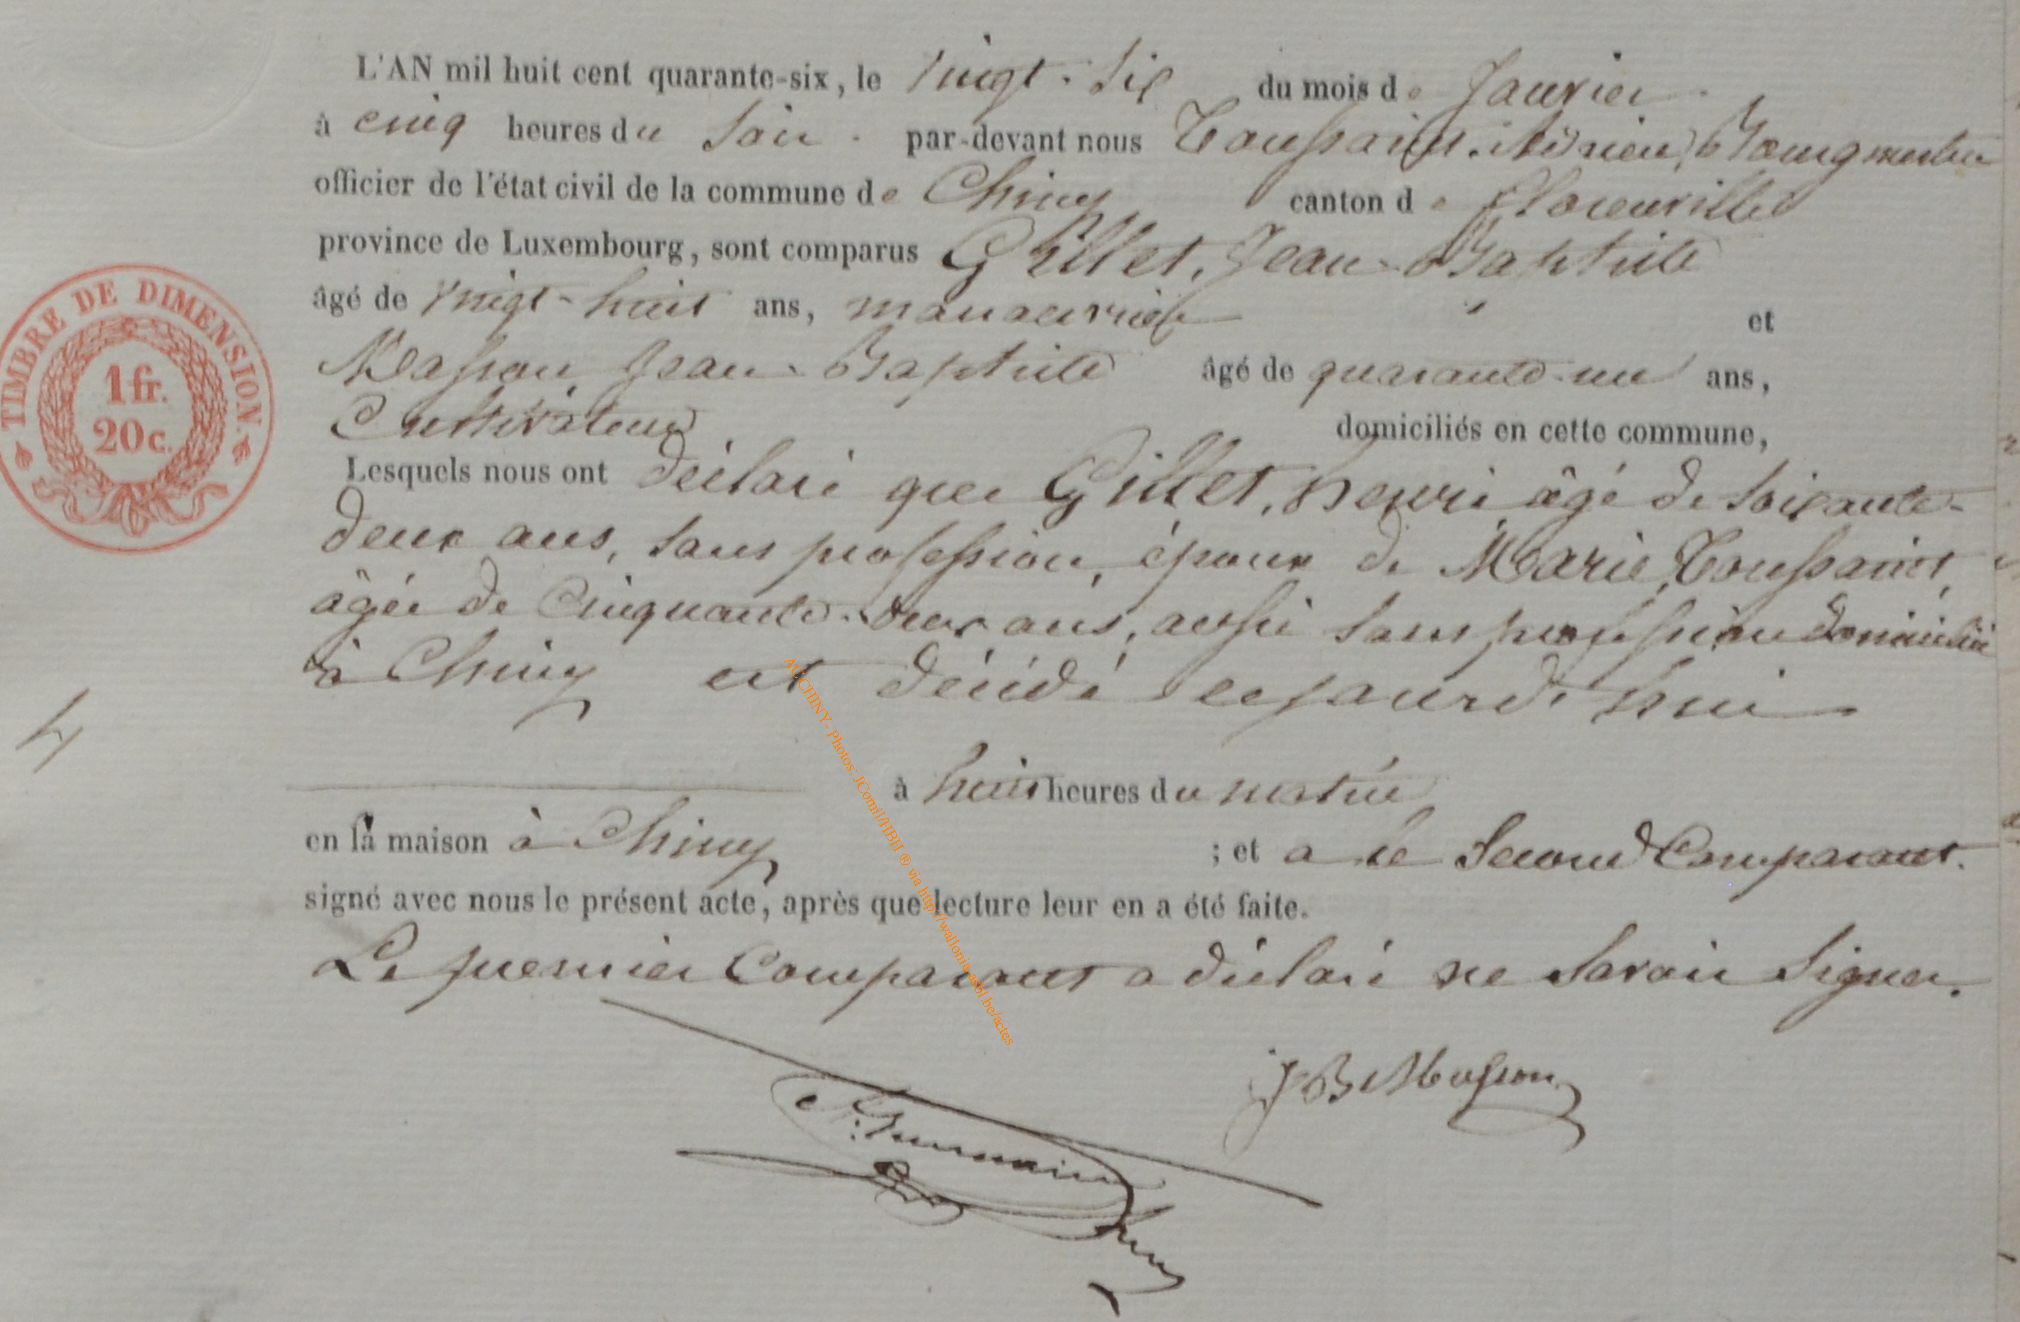 L'AN mil huit cent quarante-six, le vingt-six du mois de Janvier
à cinq heures du soir par-devant nous Toussaint, Adrien, Bourgmestre
officier de l'état civil de la commune de Chiny canton de Florenville
province de Luxembourg, sont comparus Gillet, Jean-Baptiste
âgé de vingt-huit ans, manœuvrier et
Masson Jean-Baptiste âgé de quarante-un ans,
Cultivateur domiciliés en cette commune,
Lesquels nous ont déclaré que Gillet, Henri âgé de soixante-
deux ans, sans profession, époux de Marie Toussaint,
âgée de cinquante-deux ans, aussi sans profession domiciliée
à Chiny est décédé cejourd'hui
à huit heures du matin
en sa maison à Chiny ; et a le second Comparant.
signé avec nous le présent acte, après que lecture leur en a été faite.
Le premier Comparant a déclaré ne savoir signer.
JB Masson
TIMBRE DE DIMENSION.
1 fr.
20 c.
4
AECHINY- Photos: JCornil/HBH ® via http://wallonia.asbl.be/actes